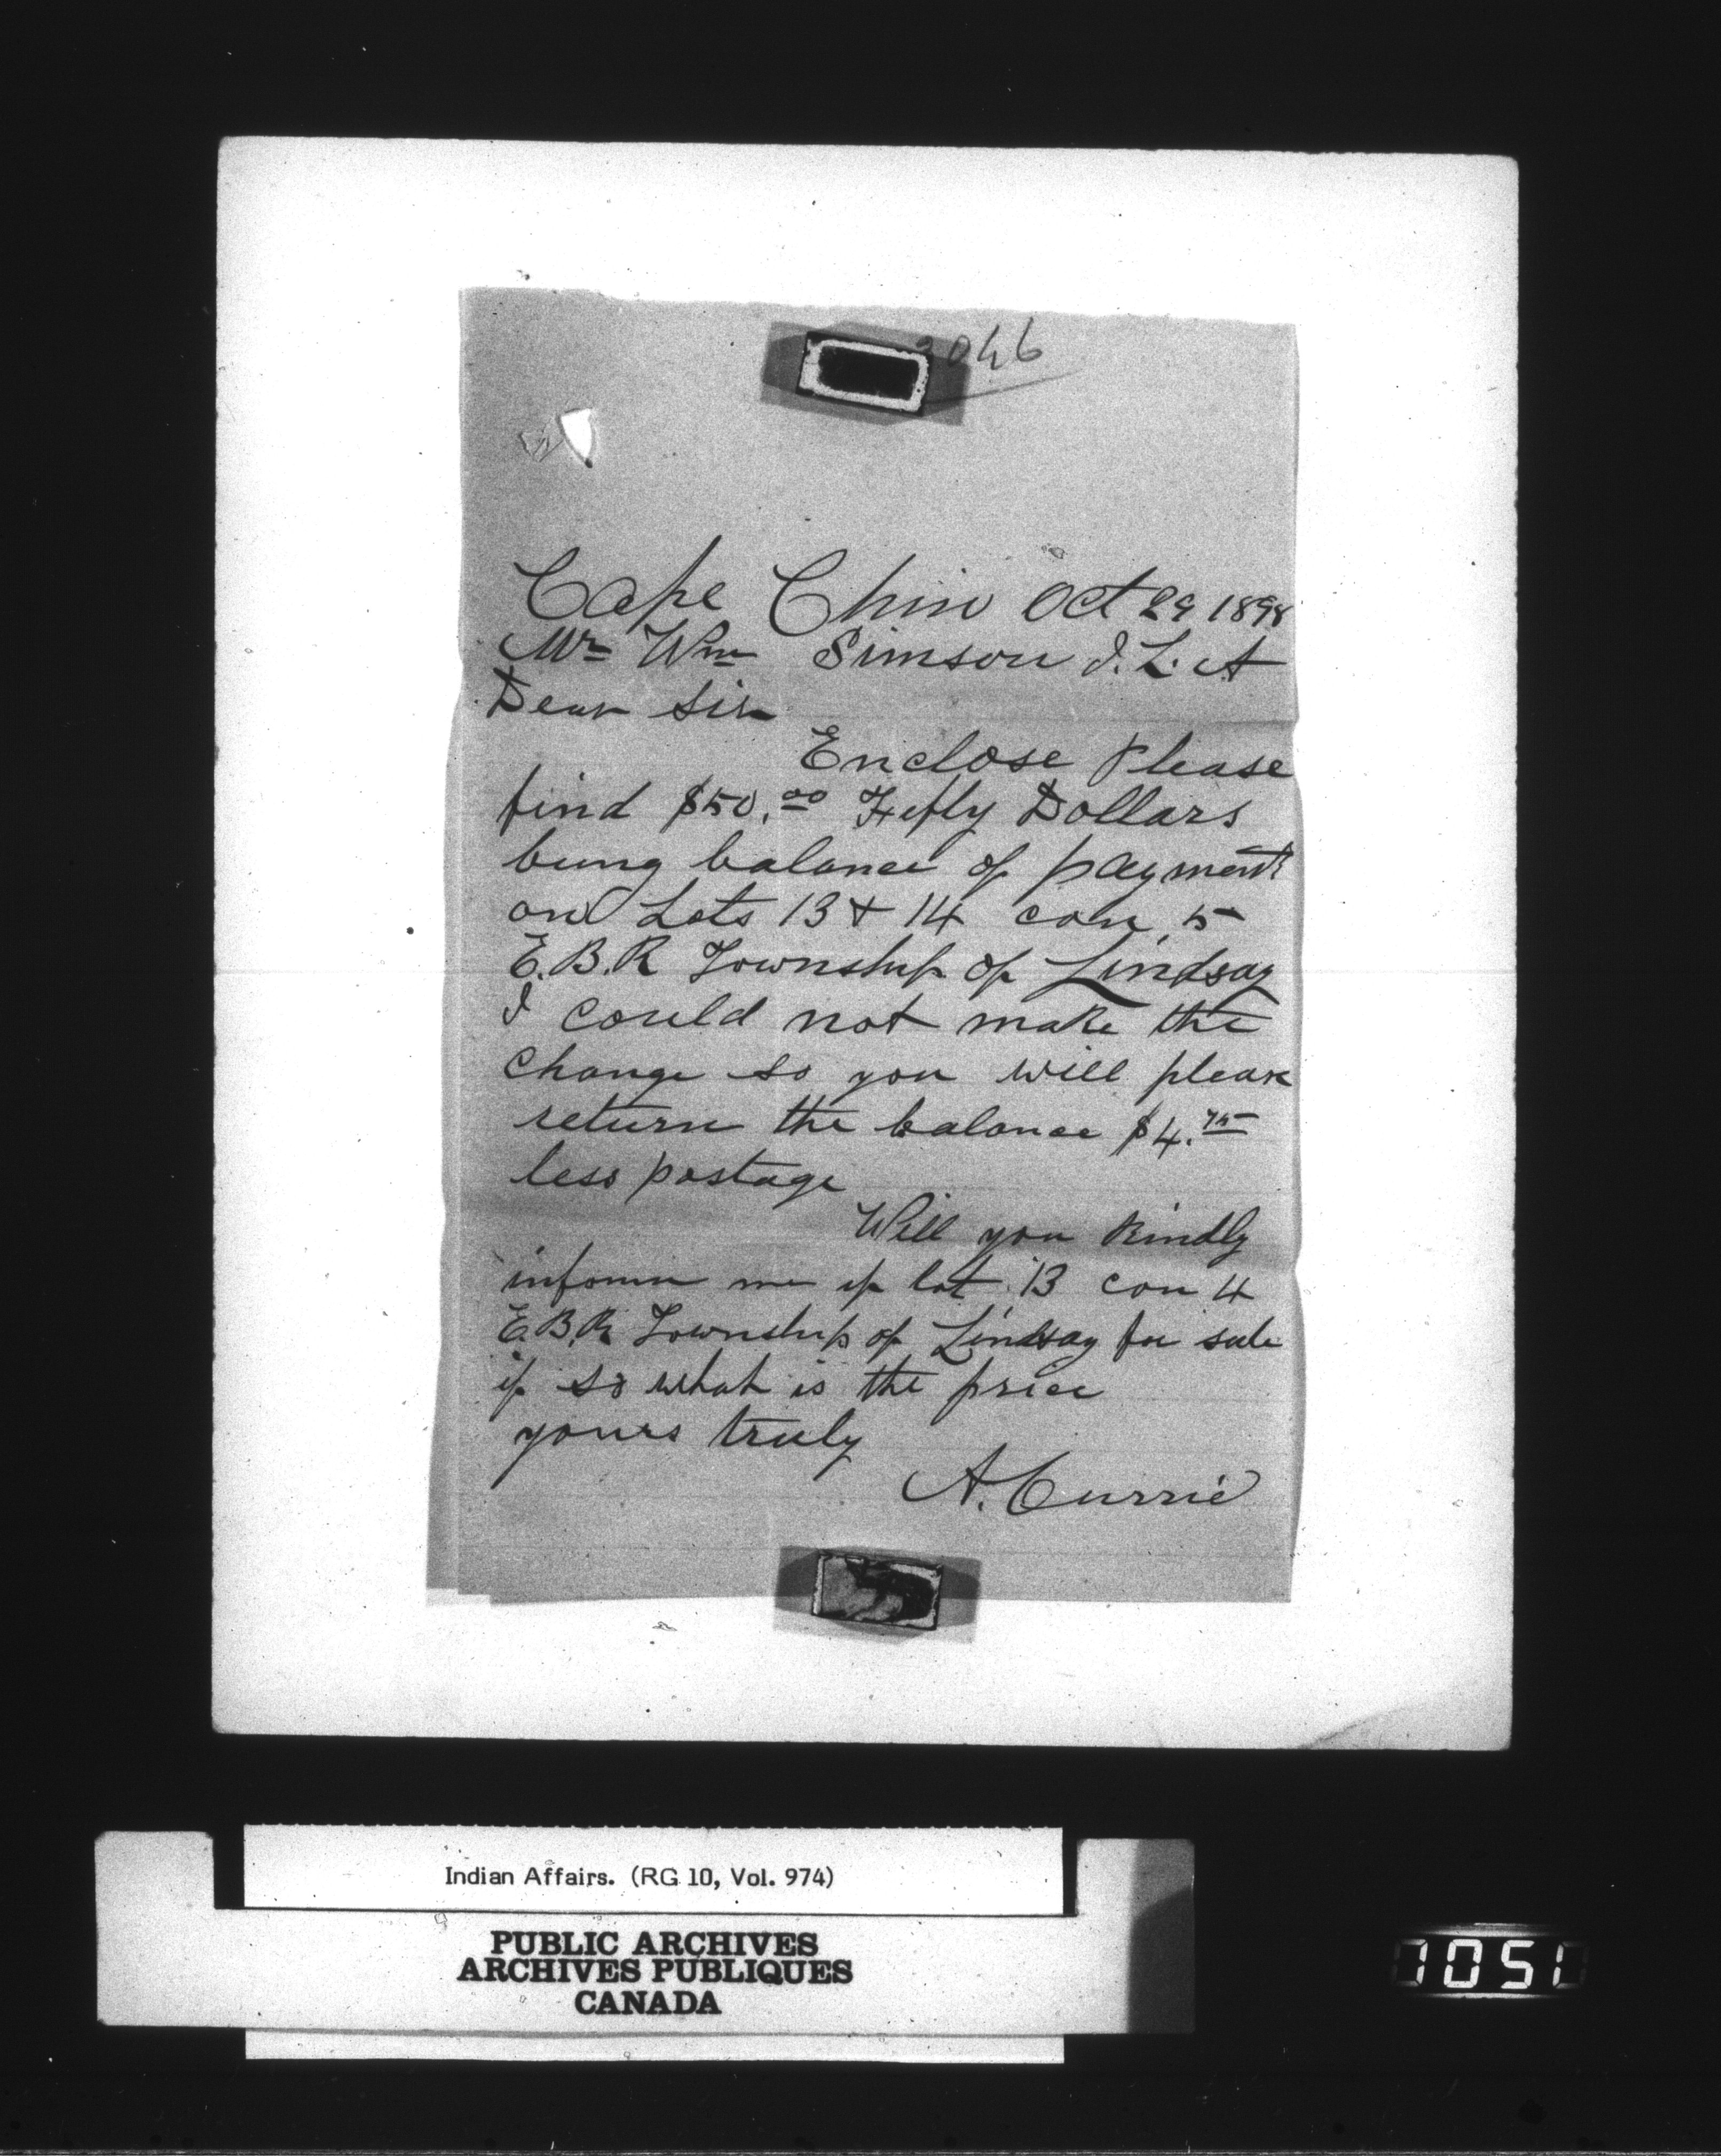 3046
Cape Chin Oct 29 1898
Mr Wm Simson I. L. A
Dear Sir
Enclose Please
find $50.00 Fiefty Dollars
being balance of payment
on Lots 13 + 14 con, 5
E.B.R Township of Lindsay
I could not make the
change so you will please
return the balance $4.75
less postage
Will you kindly
inform me if lot 13 con 4
E.B.R Township of Lindsay for sale
if so what is the price
yours truly
A. Currie
Indian Affairs. (RG 10, Vol. 974)
PUBLIC ARCHIVES
ARCHIVES PUBLIQUES
CANADA
1051